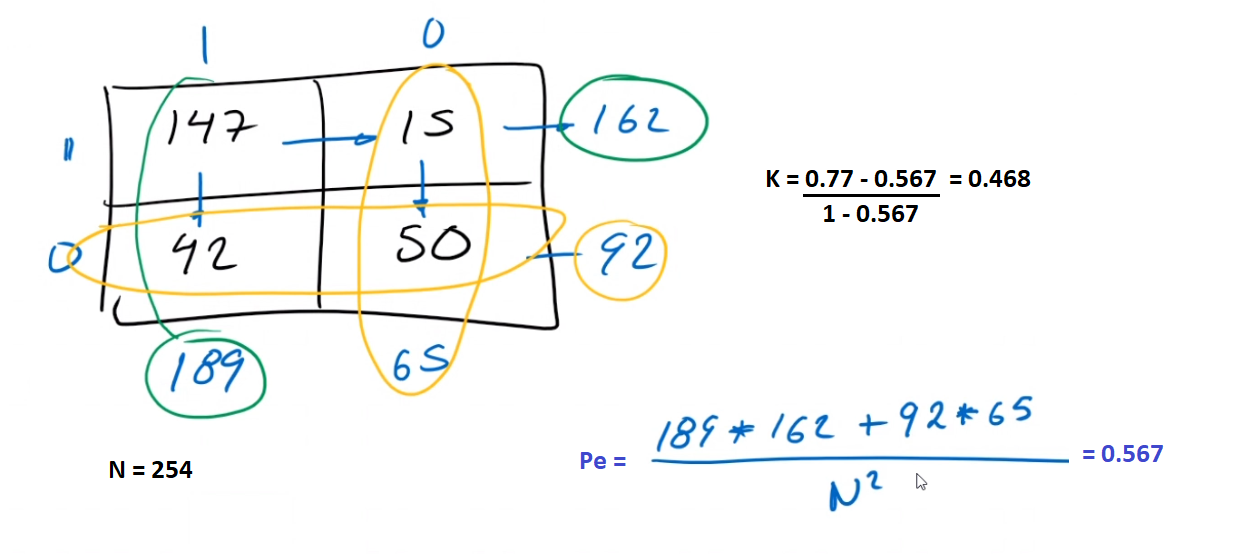 1 0
1 147 15 162
0 42 50 92
189 65
K = 0.77 - 0.567 = 0.468
1 - 0.567
N = 254
Pe = 189 * 162 + 92 * 65 = 0.567
N²